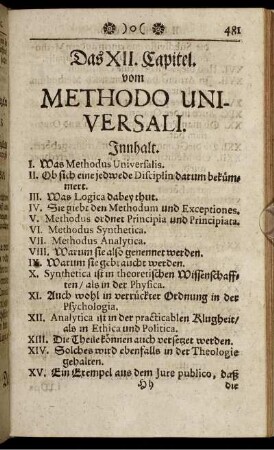 )o( 481
Das XII. Capitel.
vom
METHODO UNI-
VERSALI.
Jnnhalt.
I. Was Methodus Universalis.
II. Ob sich eine jedwede Disciplin darum beküm-
mert.
III. Was Logica dabey thut.
IV. Sie giebt den Methodum und Exceptiones.
V. Methodus ordnet Principia und Principiata.
VI. Methodus Synthetica.
VII. Methodus Analytica.
VIII. Warum sie also genennet werden.
IX. Warum sie gebraucht werden.
X. Synthetica ist in theoretischen Wissenschaff-
ten/ als in der Physica.
XI. Auch wohl in verrückter Ordnung in der
Psychologia.
XII. Analytica ist in der practicablen Klugheit/
als in Ethica und Politica.
XIII. Die Theile können auch versetzet werden.
XIV. Solches wird ebenfalls in der Theologie
gehalten.
XV. Ein Exempel aus dem Jure publico, daß
Hh die